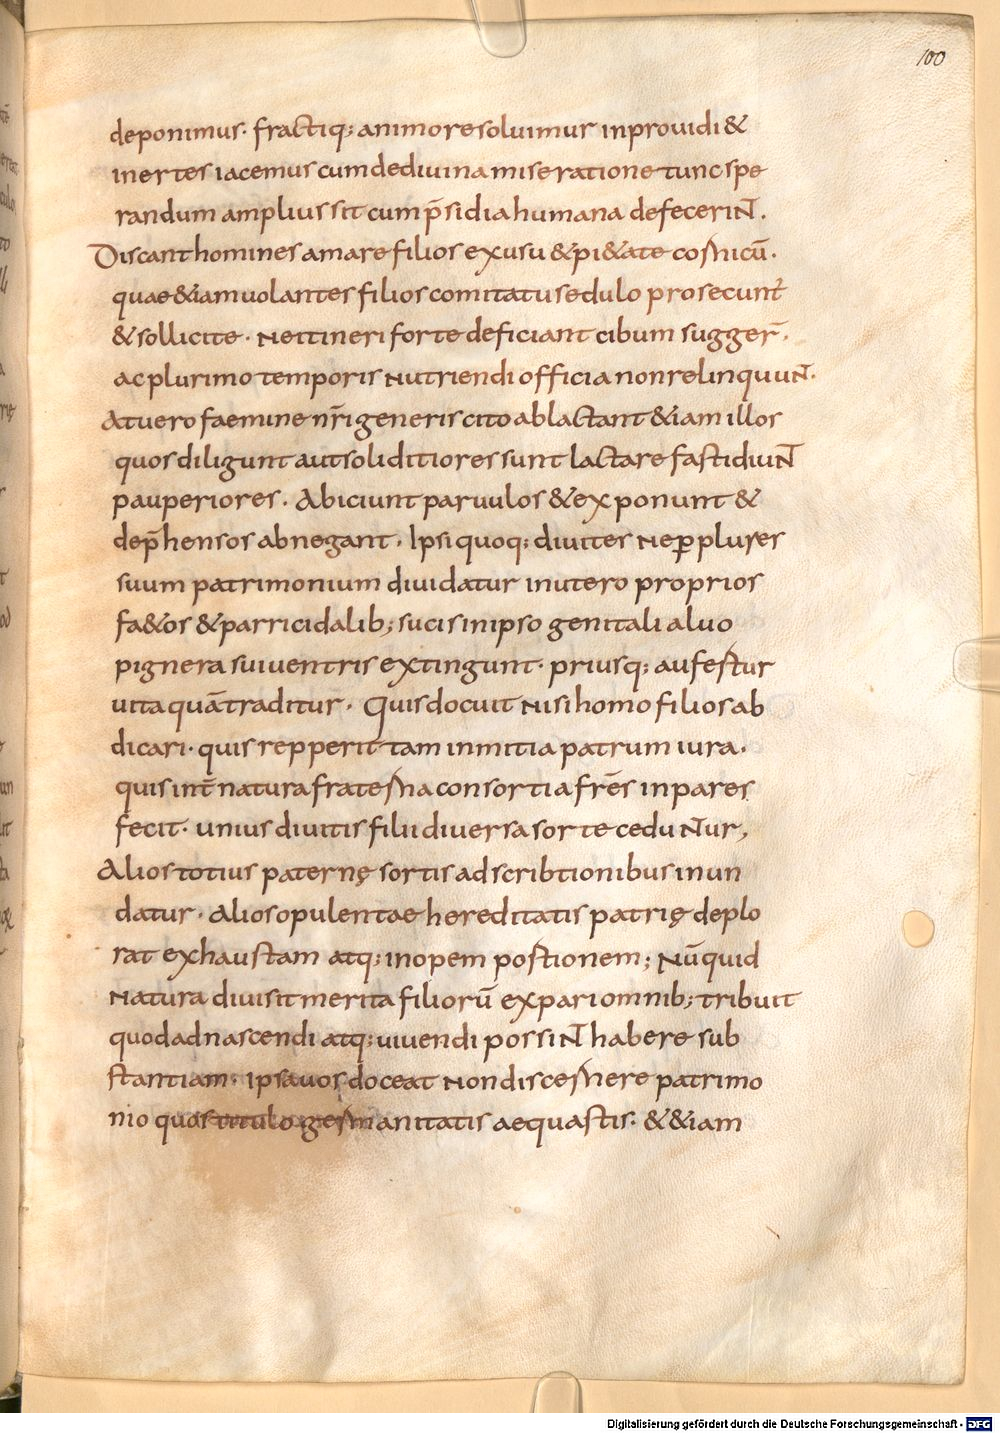 100
deponimus· fractiq; animo resoluimur inprouidi &
inertes iacemus cum dediuina miseratione tunc spe
randum amplius sit cum p̄sidia humana defecerint.
Discant homines amare filios exusu & pi&ate cornicū·
quae &iam uolantes filios comitatu sedulo prosecunt̄
& sollicite· ne itineri forte deficiant cibum sugger̄·
ac plurimo temporis nutriendi officia non relinquunt·
At uero faemine nr̄i generis cito ablactant &iam illos
quos diligunt aut soliditiores sunt lactare fastidiunt
pauperiores· Abiciunt paruulos & exponunt &
dep̄hensos abnegant· Ipsi quoq; diuites ne ꝑ plures
suum patrimonium diuidatur inutero proprios
fa&os & parricidalib; sucis inipso genitali aluo
pignera sui uentris extingunt· priusq; aufertur
uita quā traditur· Quis docuit nisi homo filios ab
dicari· quis repperit tam inmitia patrum iura·
quis int̄ natura fraterna consortia fr̄es inpares
fecit· unius diuitis filii diuersa sorte ceduntur,
Alios totius paternę sortis adscribtionibus inun
datur· alios opulentae hereditatis patrię deplo
rat exhaustam atq; inopem postionem; Nūquid
natura diuisit merita filiorū expari omnib; tribuit
quod ad nascendi atq; uiuendi possint habere sub
stantiam· ipsa uos doceat non discernere patrimo
nio quos titulo germanitatis aequastis· & &iam
Digitalisierung gefördert durch die Deutsche Forschungsgemeinschaft - DFG